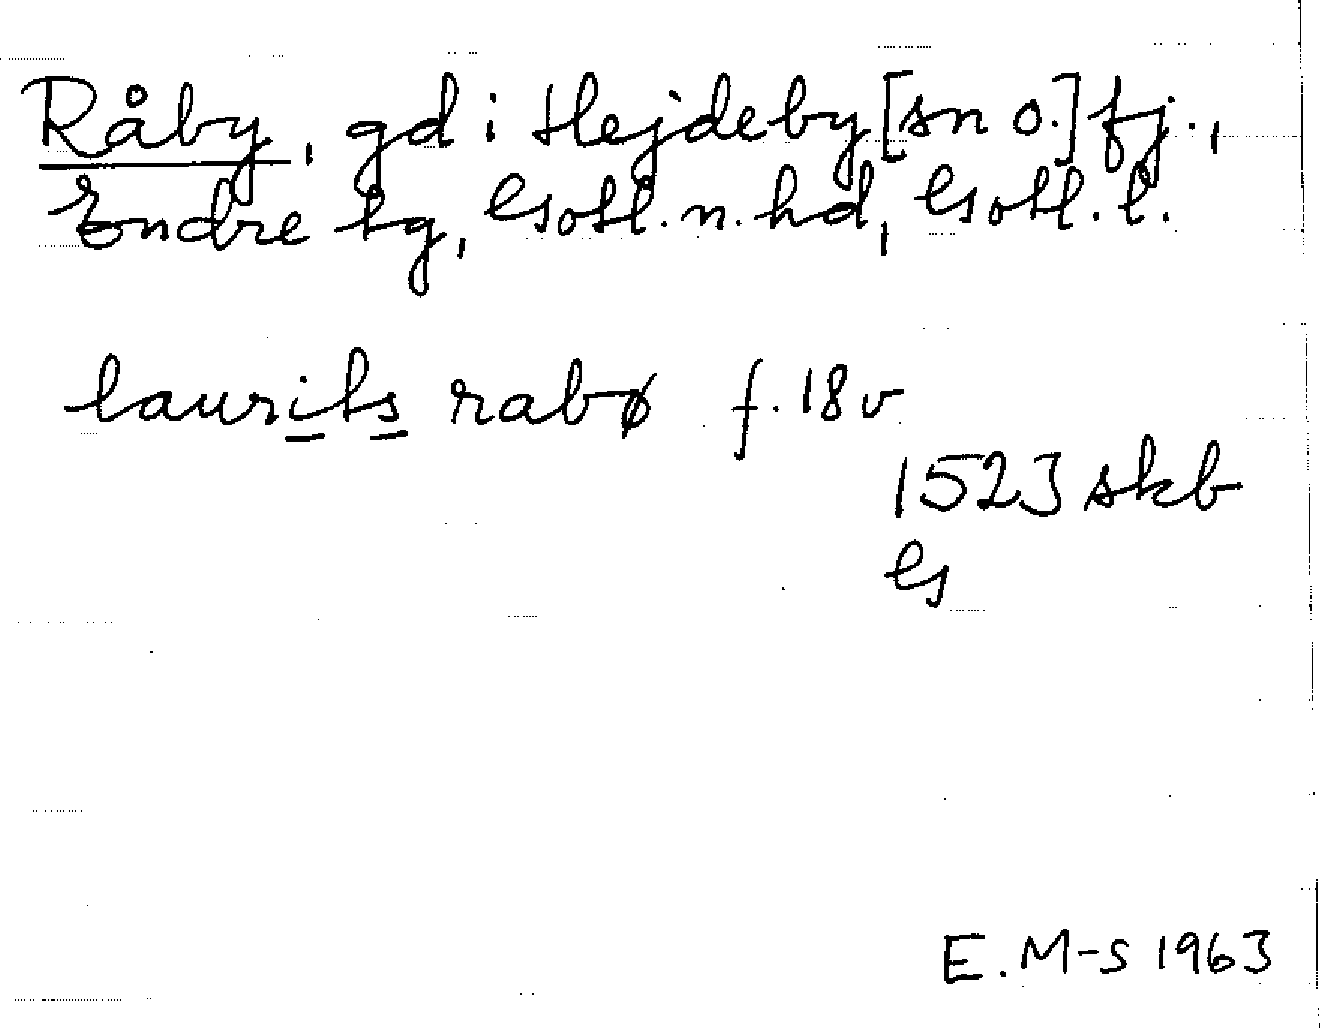 Råby, gd i Hejdeby [sn o.] fj.,
Endre tg, Gotl. n. hd, Gotl. l.
laurits rabø f. 18v
1523 skb
G
E. M-S 1963